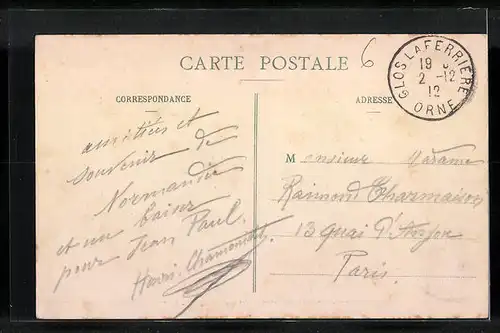 CARTE POSTALE
6
GLOS LA FERRIÈRE
19
2 -12
12
ORNE
CORRESPONDANCE
ADRESSE
amitiés et
souvenir de
Normandie
et un baiser
pour Jean Paul.
Henri
Monsieur Madame
Raimond
13 quai d'Anjou
Paris.